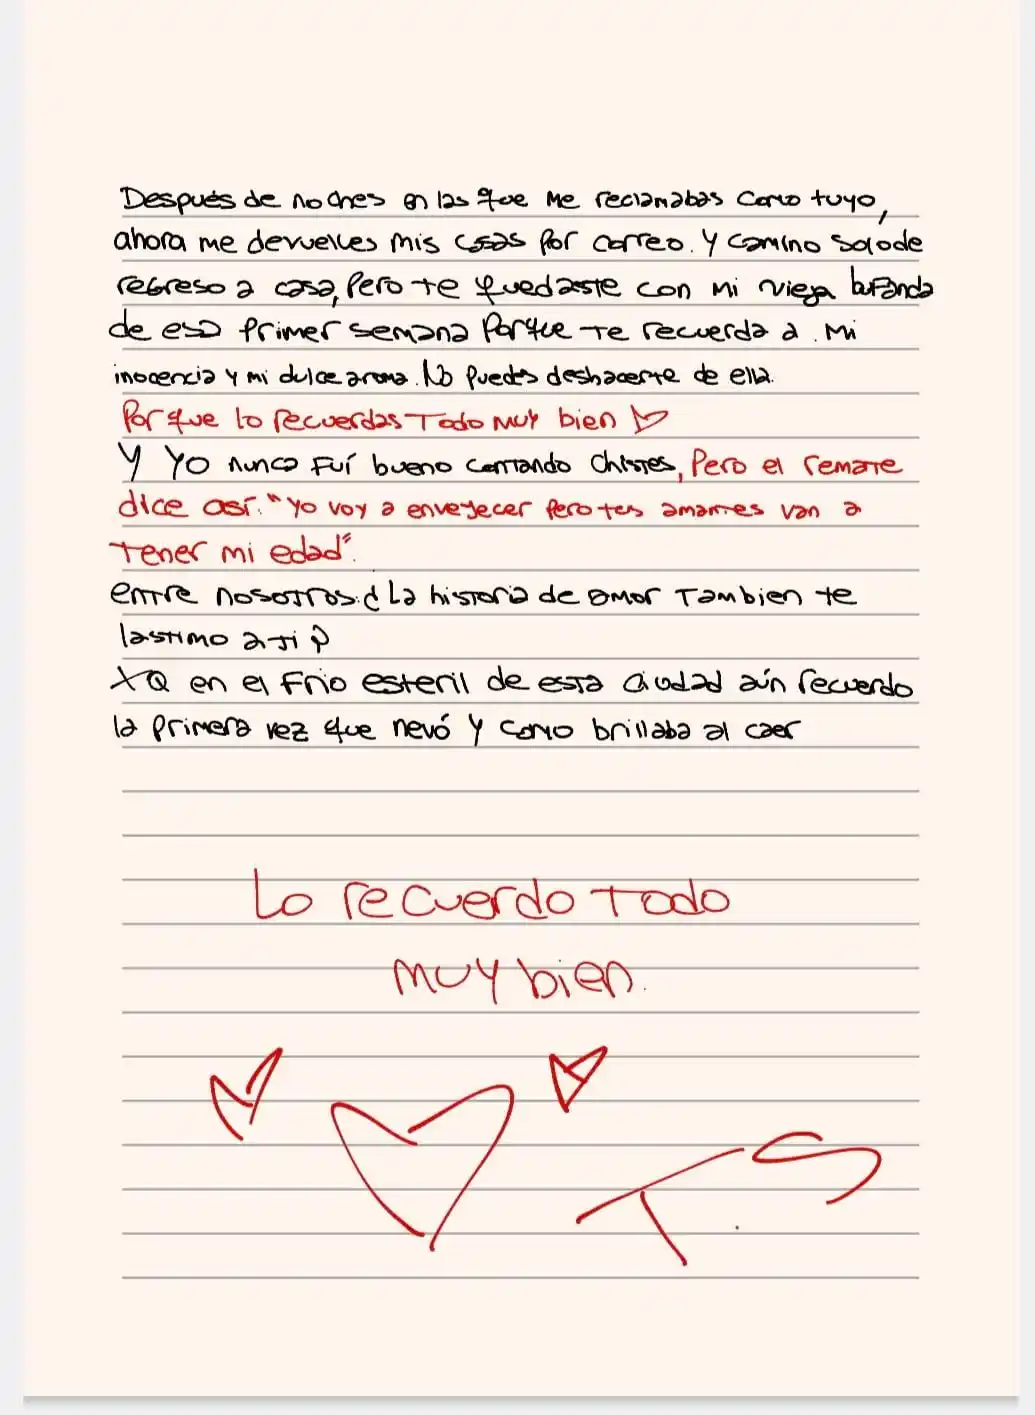 Después de noches en las que me reclamabas como tuyo,
ahora me devuelves mis cosas por correo. Y camino solo de
regreso a casa, pero te quedaste con mi vieja bufanda
de esa primer semana porque te recuerda a. mi
inocencia y mi dulce aroma. No puedes deshacerte de ella.
Porque lo recuerdas todo muy bien
Y yo nunca fuí bueno contando chistes, pero el remate
dice así. "yo voy a envejecer pero tus amantes van a
tener mi edad".
entre nosotros: ¿La historia de amor tambien te
lastimo a ti?
XQ en el frio esteril de esta ciudad aún recuerdo
la primera vez que nevó y como brillaba al caer
Lo recuerdo todo
muy bien.
T.S